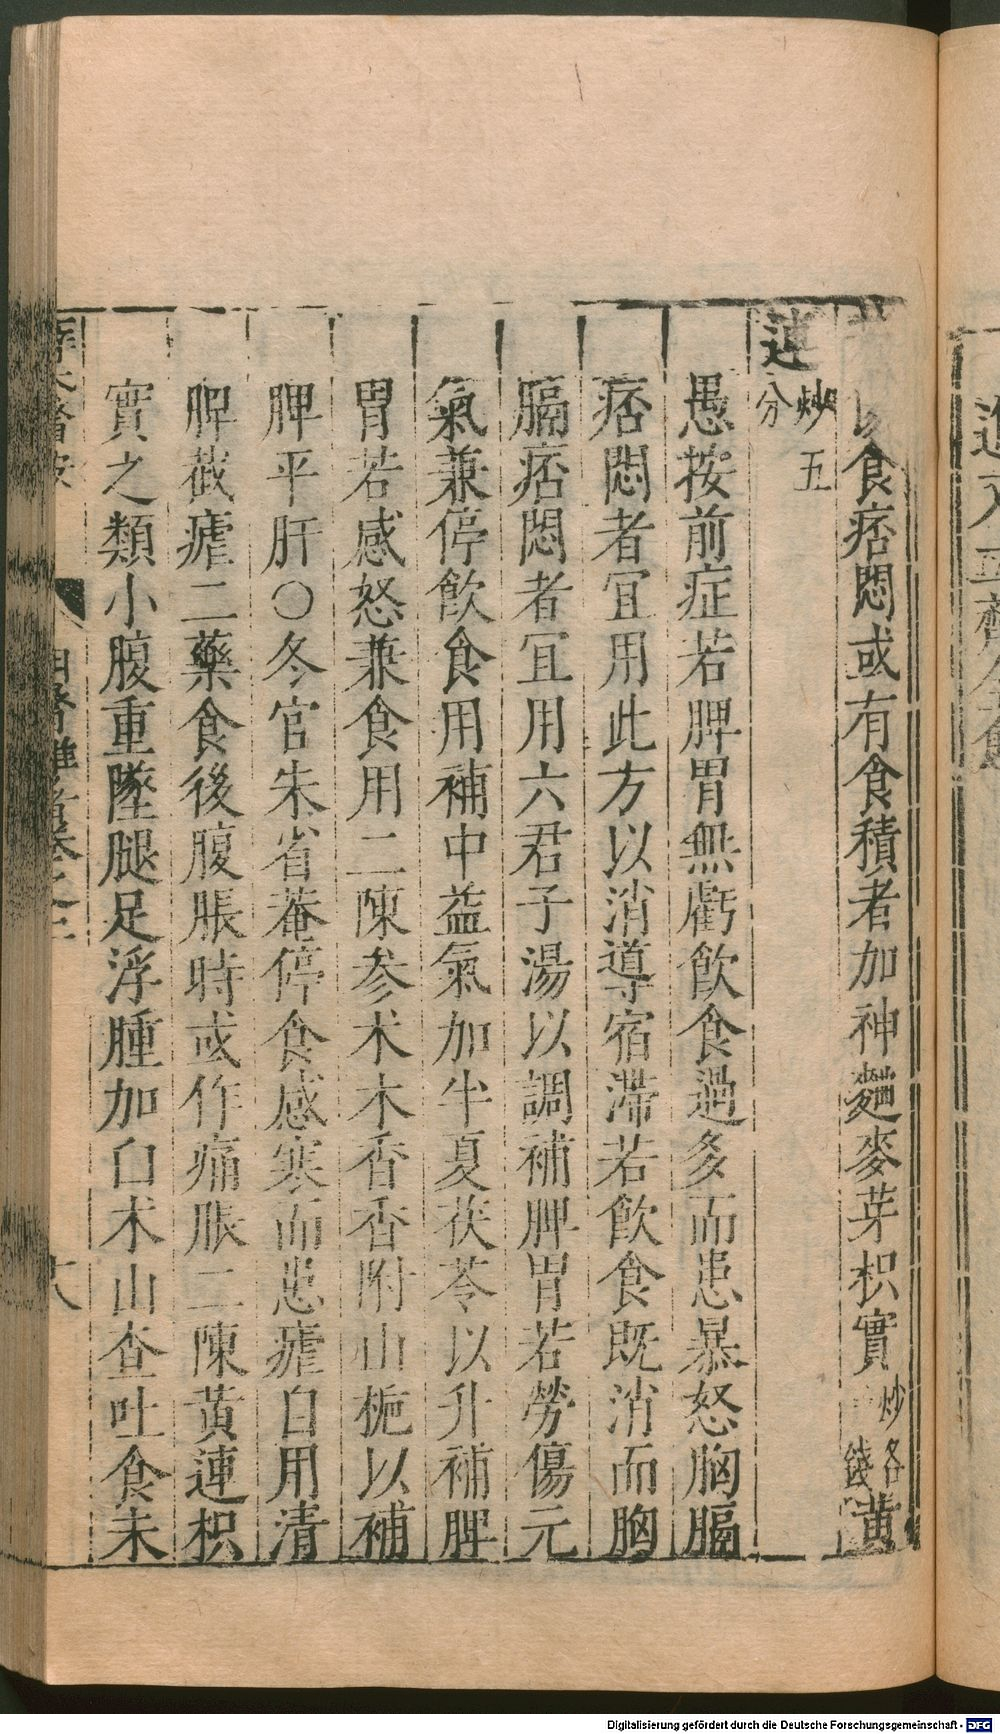 食痞悶或有食積者加神麯麥芽枳實炒各 錢黃
連炒五分
愚按前症若脾胃無虧飲食過多而患暴怒胸膈
痞悶者宜用此方以消導宿滯若飲食既消而胸
膈痞悶者宜用六君子湯以調補脾胃若勞傷元
氣兼停飲食用補中益氣加半夏茯苓以升補脾
胃若感怒兼食用二陳參朮木香香附山梔以補
脾平肝○冬官朱省菴停食感寒而患瘧自用清
脾截瘧二藥食後腹脹時或作痛脹二陳黃連枳
實之類小腹重墜腿足浮腫加白朮山查吐食未
Digitalisierung gefördert durch die Deutsche Forschungsgemeinschaft - DFG